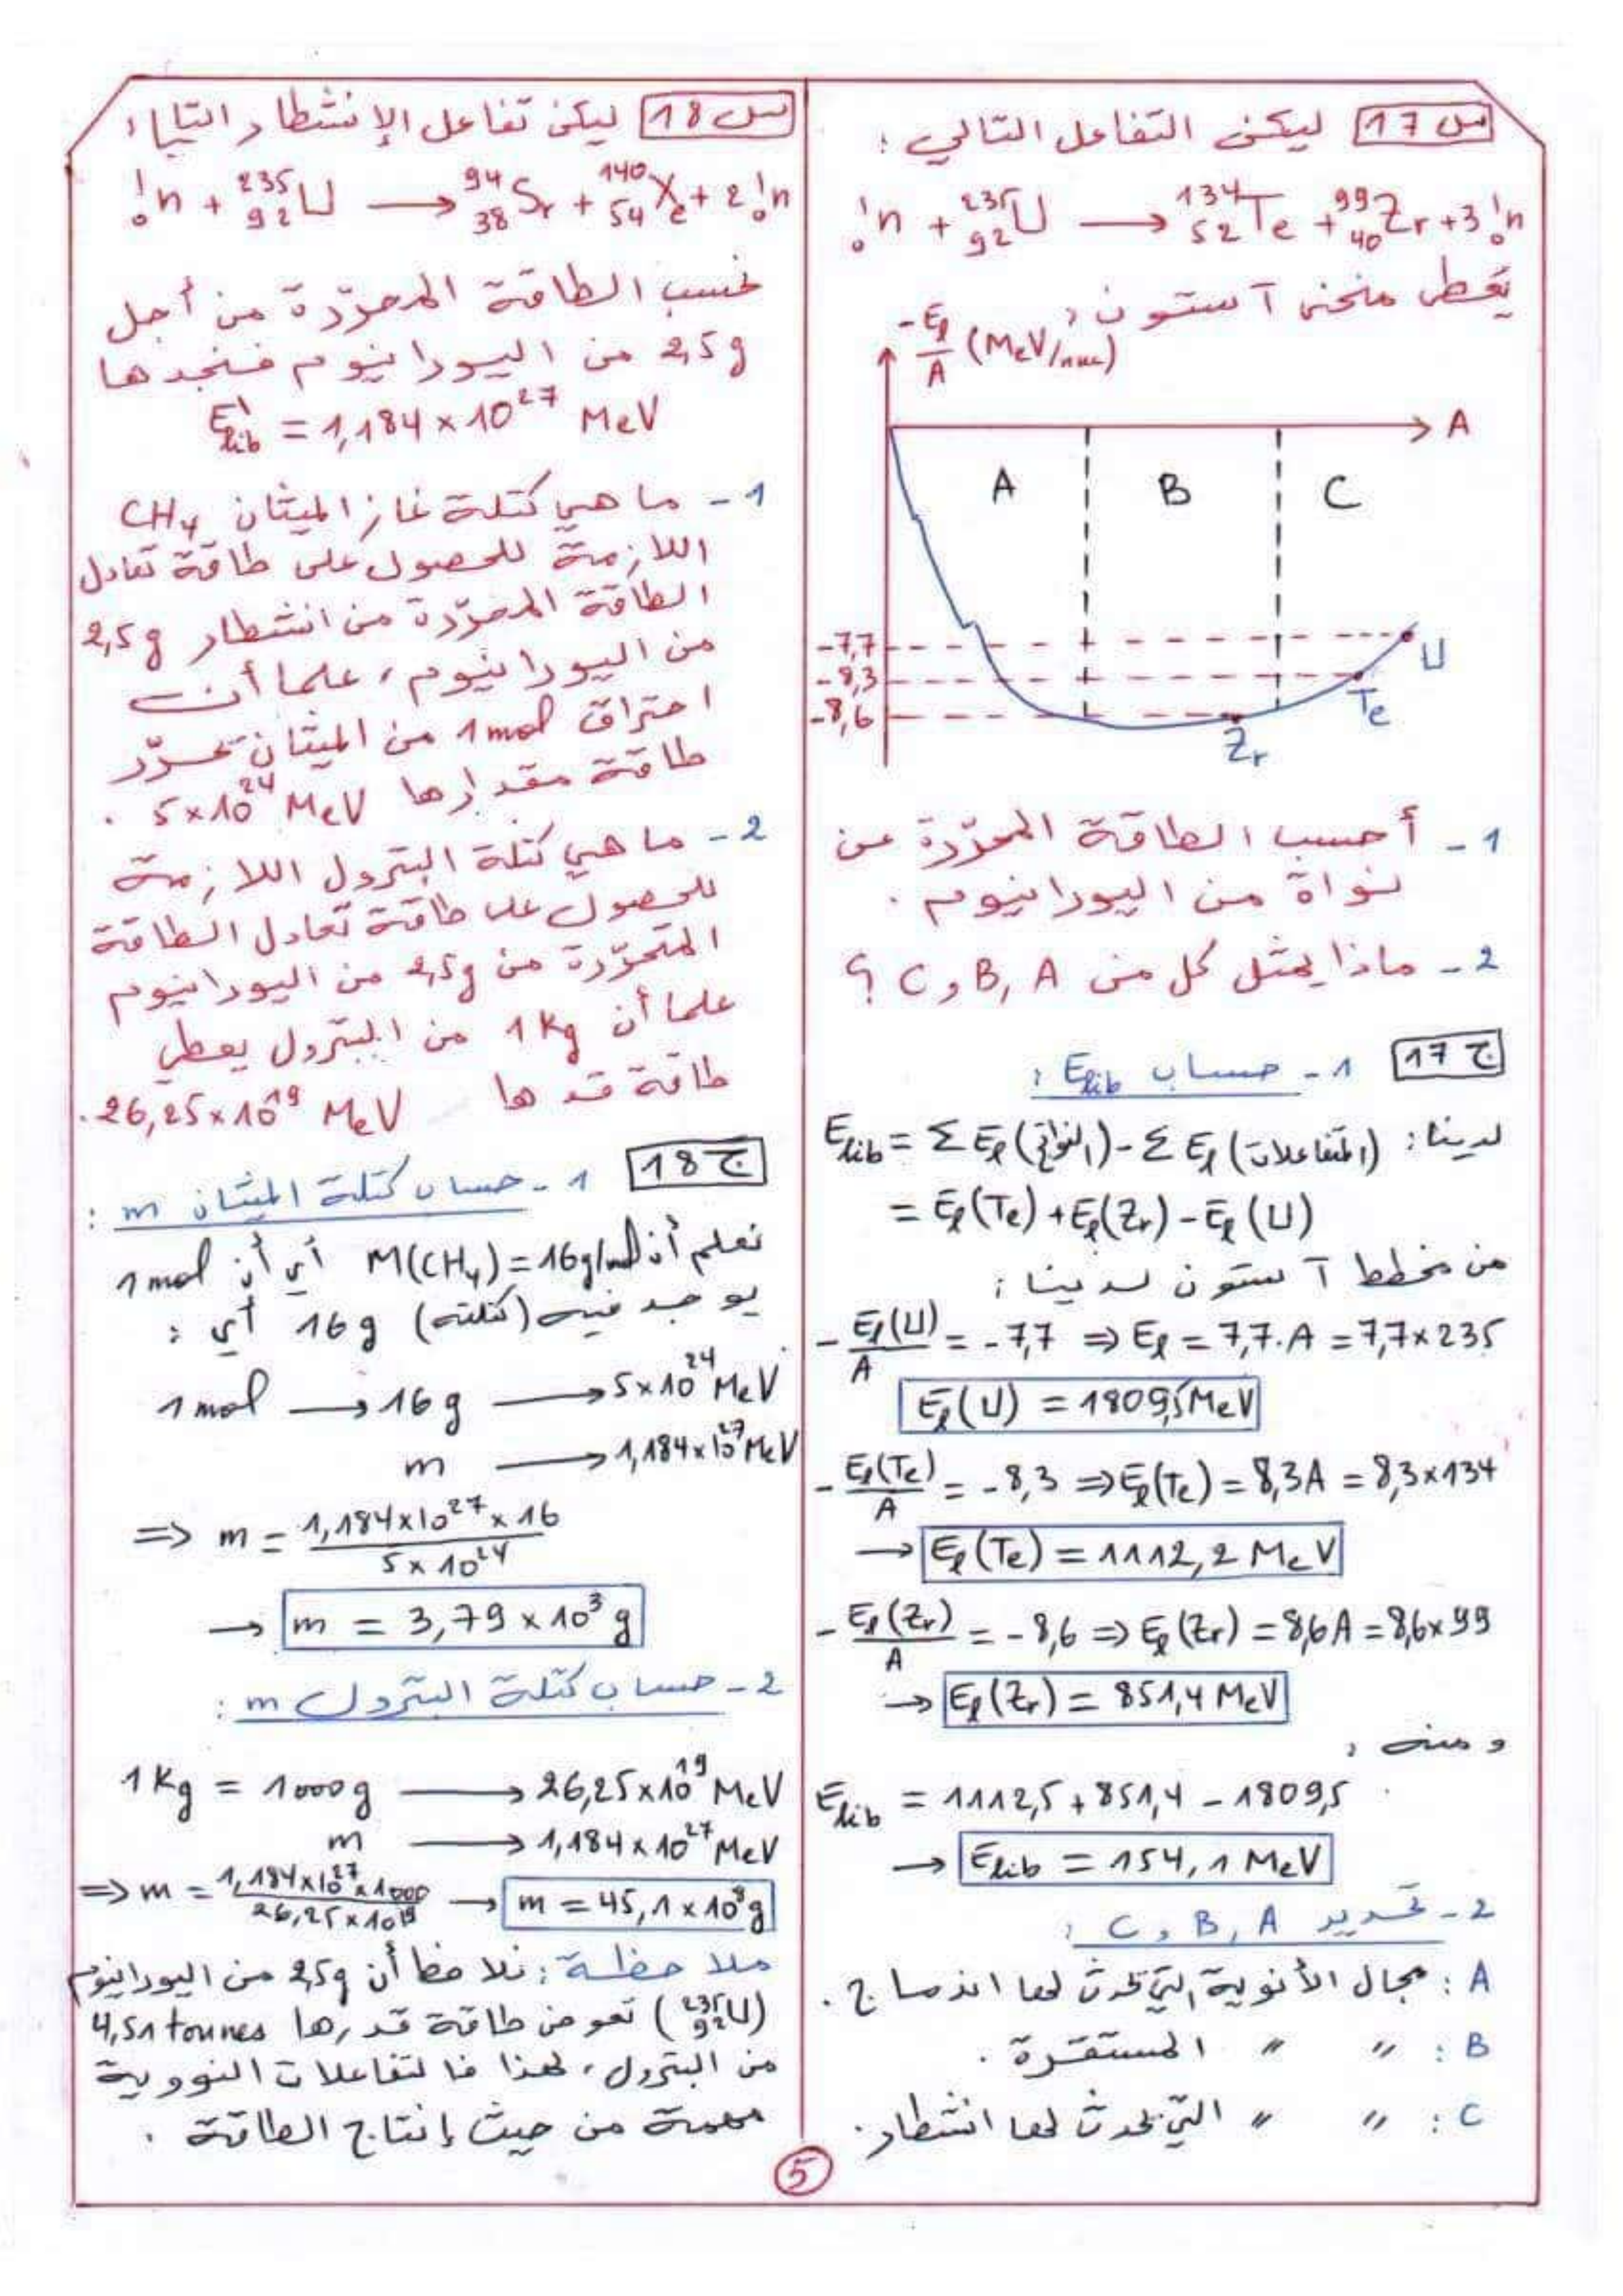 س 17 ليكن التفاعل التالي :
¹₀n + ²³⁵₉₂U → ¹³⁴₅₂Te + ⁹⁹₄₀Zr + 3 ¹₀n
يعطى منحنى آستون :
-El/A (MeV/nuc)
A
A B C
-7,7
-8,3
-8,6
U
Te
Zr
1 - أحسب الطاقة المحرّرة عن
نواة من اليورانيوم .
2 - ماذا يمثل كل من A , B و C ؟
ج 17 1 - حساب Elib :
لدينا : Elib = Σ El (النواتج) - Σ El (المتفاعلات)
= El(Te) + El(Zr) - El(U)
من مخطط آستون لدينا :
- El(U)/A = -7,7 ⇒ El = 7,7.A = 7,7×235
El(U) = 1809,5 MeV
- El(Te)/A = -8,3 ⇒ El(Te) = 8,3A = 8,3×134
→ El(Te) = 1112,2 MeV
- El(Zr)/A = -8,6 ⇒ El(Zr) = 8,6A = 8,6×99
→ El(Zr) = 851,4 MeV
و منه :
Elib = 1112,5 + 851,4 - 1809,5
→ Elib = 154,1 MeV
2 - تحديد A , B و C :
A : مجال الأنوية التي تحدث لها اندماج .
B : " " المستقرة .
C : " " التي تحدث لها انشطار .
س 18 ليكن تفاعل الإنشطار التالي :
¹₀n + ²³⁵₉₂U → ⁹⁴₃₈Sr + ¹⁴⁰₅₄Xe + 2 ¹₀n
نحسب الطاقة المحرّرة من أجل
2,5 g من اليورانيوم فنجدها
E'lib = 1,184 × 10²⁷ MeV
1 - ما هي كتلة غاز الميثان CH₄
اللازمة للحصول على طاقة تعادل
الطاقة المحرّرة من انشطار 2,5 g
من اليورانيوم ، علما أن
احتراق 1 mol من الميثان تحرّر
طاقة مقدارها 5×10²⁴ MeV .
2 - ما هي كتلة البترول اللازمة
للحصول على طاقة تعادل الطاقة
المتحرّرة من 2,5g من اليورانيوم
علما أن 1 Kg من البترول يعطي
طاقة قدرها 26,25×10¹⁹ MeV .
ج 18 1 - حساب كتلة الميثان m :
نعلم أن M(CH₄) = 16g/mol أي أن 1 mol
يوجد فيه (كتلته) 16 g أي :
1 mol → 16 g → 5×10²⁴ MeV
m → 1,184×10²⁷ MeV
⇒ m = 1,184×10²⁷ × 16 / 5×10²⁴
→ m = 3,79 × 10³ g
2 - حساب كتلة البترول m :
1 Kg = 1000 g → 26,25×10¹⁹ MeV
m → 1,184×10²⁷ MeV
⇒ m = 1,184×10²⁷×1000 / 26,25×10¹⁹ → m = 45,1×10⁸ g
ملاحظة : نلاحظ أن 2,5g من اليورانيوم
(²³⁵₉₂U) تعوض طاقة قدرها 4,51 tonnes
من البترول ، لهذا فالتفاعلات النووية
مهمة من حيث إنتاج الطاقة .
5